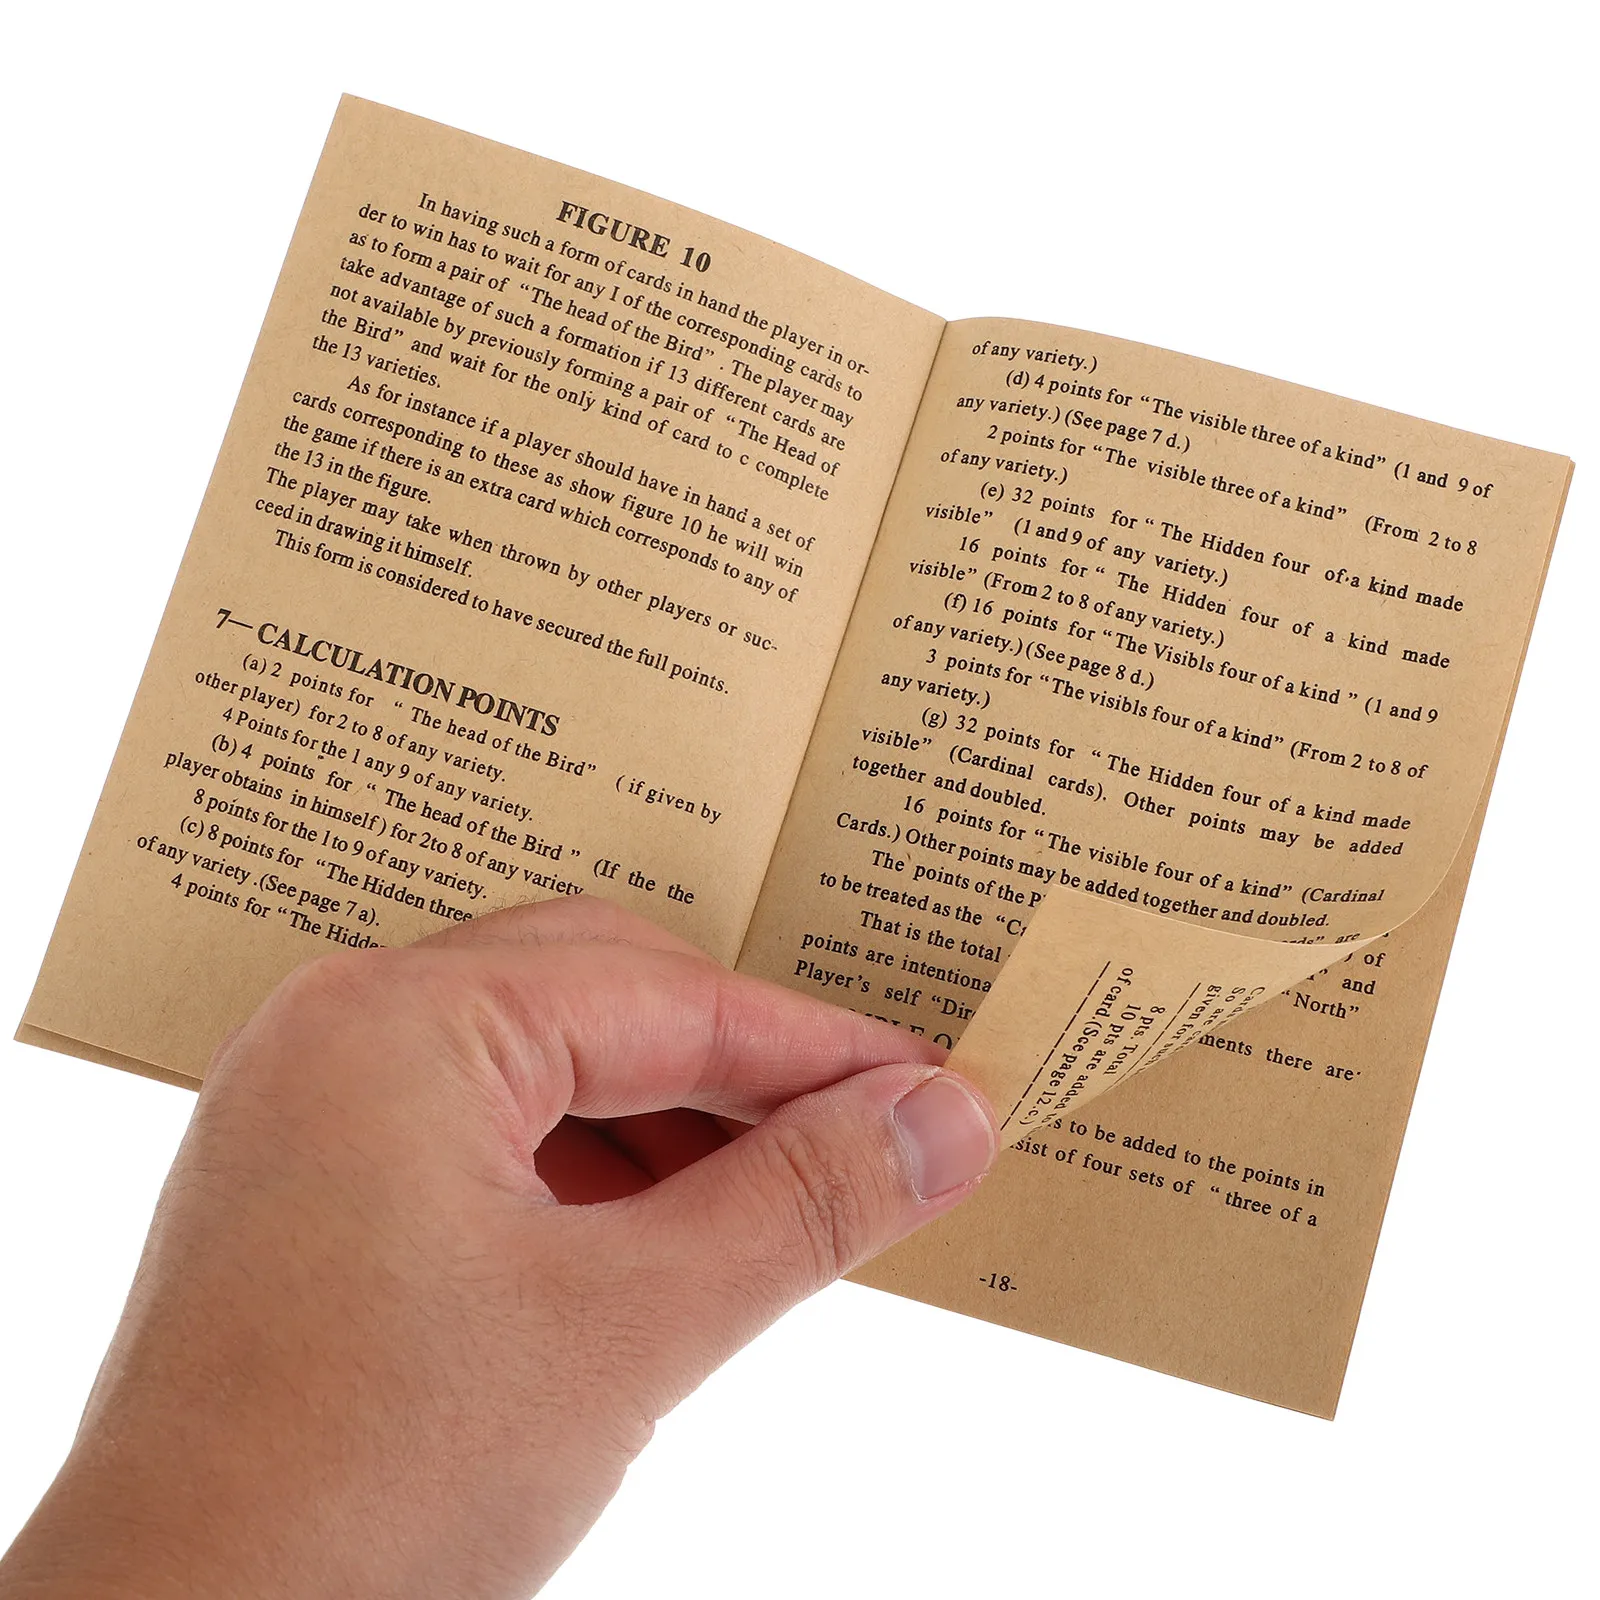 FIGURE 10
In having such a form of cards in hand the player in or-
der to win has to wait for any I of the corresponding cards to
as to form a pair of “The head of the Bird” . The player may
take advantage of such a formation if 13 different cards are
not available by previously forming a pair of “The Head of
the Bird” and wait for the only kind of card to c complete
the 13 varieties.
As for instance if a player should have in hand a set of
cards corresponding to these as show figure 10 he will win
the game if there is an extra card which corresponds to any of
the 13 in the figure.
The player may take when thrown by other players or suc-
ceed in drawing it himself.
This form is considered to have secured the full points.
7—CALCULATION POINTS
(a) 2 points for “ The head of the Bird” ( if given by
other player) for 2 to 8 of any variety.
4 Points for the 1 any 9 of any variety.
(b) 4 points for “ The head of the Bird ” (If the the
player obtains in himself ) for 2to 8 of any variety
8 points for the 1 to 9 of any variety.
(c) 8 points for “The Hidden three
of any variety .(See page 7 a).
4 points for “The Hidde
of any variety.)
(d) 4 points for “The visible three of a kind” (1 and 9 of
any variety.) (See page 7 d.)
2 points for “The visible three of a kind” (From 2 to 8
of any variety.)
(e) 32 points for “ The Hidden four of a kind made
visible” (1 and 9 of any variety.)
16 points for “ The Hidden four of a kind made
visible” (From 2 to 8 of any variety.)
(f) 16 points for “The Visibls four of a kind ” (1 and 9
of any variety.) (See page 8 d.)
3 points for “The visibls four of a kind” (From 2 to 8 of
any variety.)
(g) 32 points for “ The Hidden four of a kind made
visible” (Cardinal cards). Other points may be added
together and doubled.
16 points for “The visible four of a kind” (Cardinal
Cards.) Other points may be added together and doubled.
The points of the P are
to be treated as the “C ) of
That is the total and
points are intentiona “North”
Player’s self “Dir
ments there are
s to be added to the points in
sist of four sets of “three of a
-18-
8 pts. Total
10 pts are added
of card.(See page 12.c.)
So are
given for such